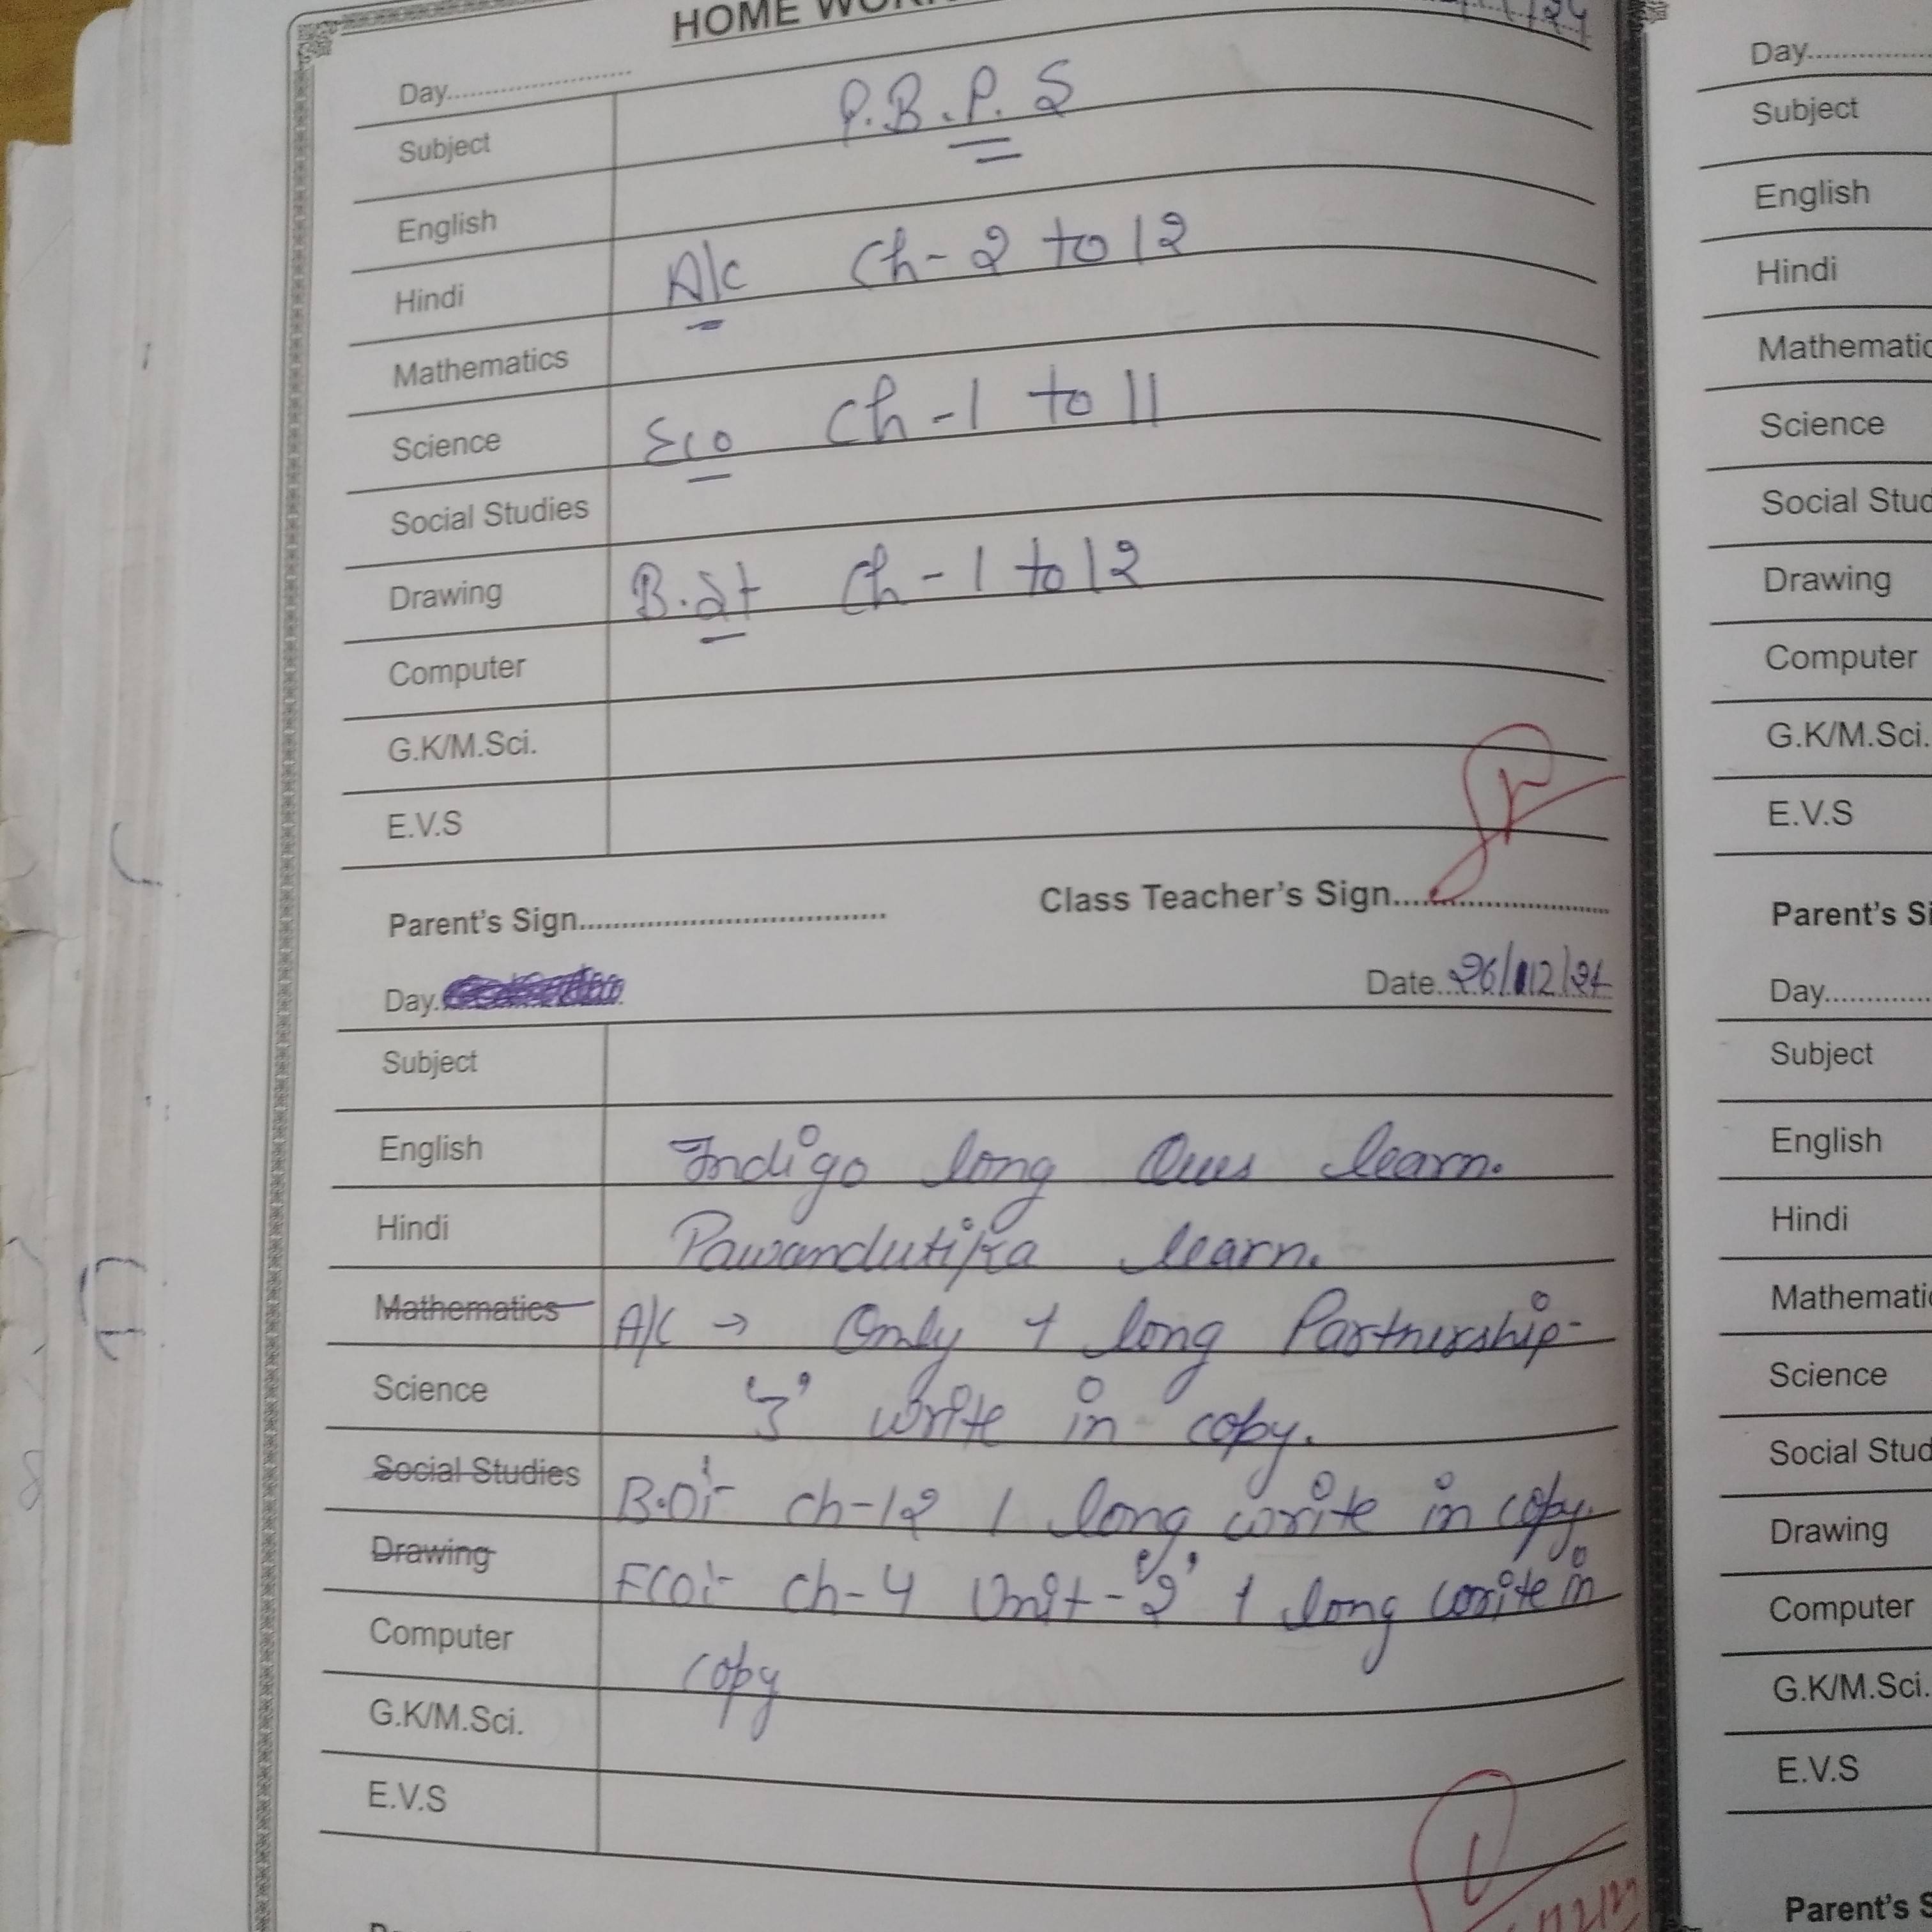 HOME WORK
Day
Subject P.B.P.S
English
Hindi A/c Ch-2 to 12
Mathematics
Science Eco Ch-1 to 11
Social Studies
Drawing B.st Ch-1 to 12
Computer
G.K/M.Sci.
E.V.S
Parent's Sign Class Teacher's Sign
Day Date 26/12/24
Subject
English Indigo long Ques learn.
Hindi Pawandutika learn.
Mathematics A/c → Only 1 long Partnership-
Science '3' write in copy.
Social Studies B.O:- ch-12 1 long write in copy.
Drawing ECO:- ch-4 Unit-'2' 1 long write in
Computer copy
G.K/M.Sci.
E.V.S
Day
Subject
English
Hindi
Mathematic
Science
Social Stud
Drawing
Computer
G.K/M.Sci.
E.V.S
Parent's Si
Day
Subject
English
Hindi
Mathemati
Science
Social Stud
Drawing
Computer
G.K/M.Sci.
E.V.S
Parent's S